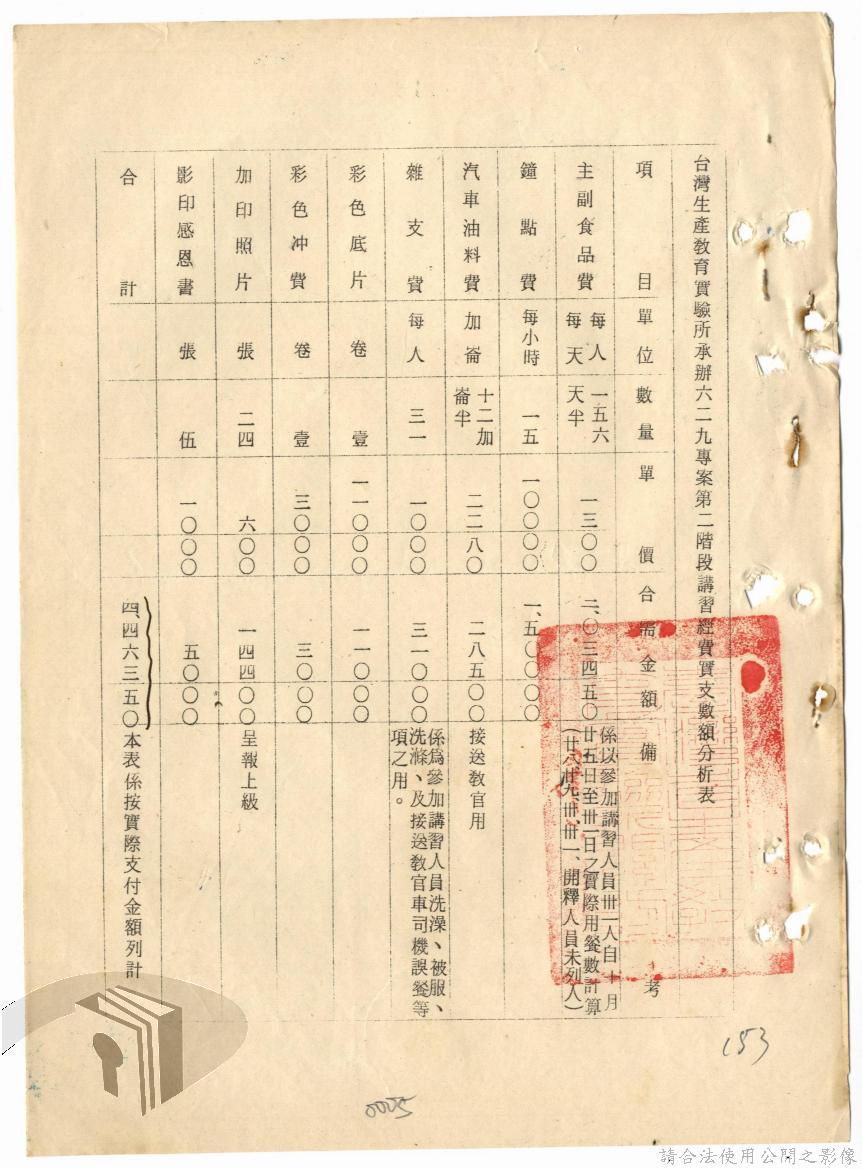 台灣生產教育實驗所承辦六二九專案第二階段講習經費實支數額分析表
項目 單位 數量 單價 合需金額 備考
主副食品費 每人每天 一五六天半 一三〇〇 二、〇三四五〇 係以參加講習人員卅一人自十月廿五日至卅一日之實際用餐數計算(廿八、廿九、卅、卅一、開釋人員未列入)
鐘點費 每小時 一五 一〇〇〇〇 一、五〇〇〇〇
汽車油料費 加崙 十二加崙半 二二八〇 二八五〇〇 接送教官用
雜支費 每人 三一 一〇〇〇 三一〇〇〇 係為參加講習人員洗澡、被服、洗滌、及接送教官車司機誤餐等項之用。
彩色底片 卷 壹 一一〇〇〇 一一〇〇〇
彩色冲費 卷 壹 三〇〇〇 三〇〇〇
加印照片 張 二四 六〇〇 一四四〇〇 呈報上級
影印感恩書 張 伍 一〇〇〇 五〇〇〇
合計 四、四六三五〇 本表係按實際支付金額列計
153
0005
請合法使用公開之影像